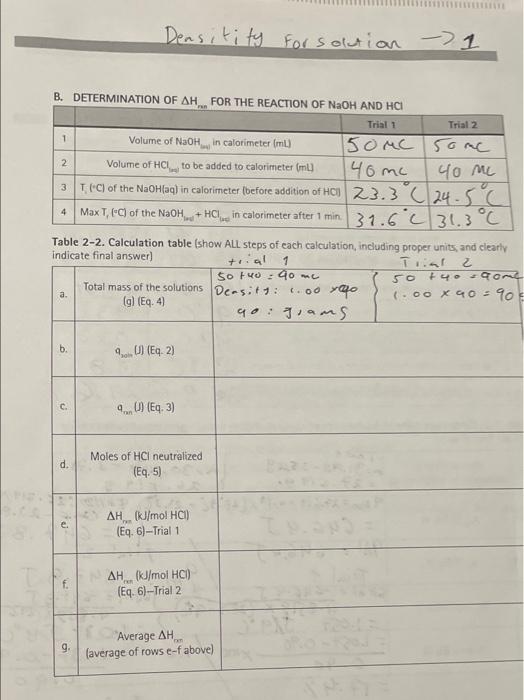 Densitity For solution → 1
B. DETERMINATION OF ΔH rxn FOR THE REACTION OF NaOH AND HCl
Trial 1 Trial 2
1 Volume of NaOH(aq) in calorimeter (mL) 50 mL 50 mL
2 Volume of HCl(aq) to be added to calorimeter (mL) 40 mL 40 mL
3 Ti (°C) of the NaOH(aq) in calorimeter (before addition of HCl) 23.3°C 24.5°C
4 Max Tf (°C) of the NaOH(aq) + HCl(aq) in calorimeter after 1 min. 31.6°C 31.3°C
Table 2-2. Calculation table (show ALL steps of each calculation, including proper units, and clearly
indicate final answer)
trial 1 Trial 2
a. Total mass of the solutions
(g) (Eq. 4)
50 + 40 = 90 mL
Density: 1.00 x 90
90 = grams
50 + 40 = 90mL
1.00 x 90 = 90g
b. qsoln (J) (Eq. 2)
c. qrxn (J) (Eq. 3)
d. Moles of HCl neutralized
(Eq. 5)
e. ΔH rxn (kJ/mol HCl)
(Eq. 6)–Trial 1
f. ΔH rxn (kJ/mol HCl)
(Eq. 6)–Trial 2
g. Average ΔH rxn
(average of rows e-f above)